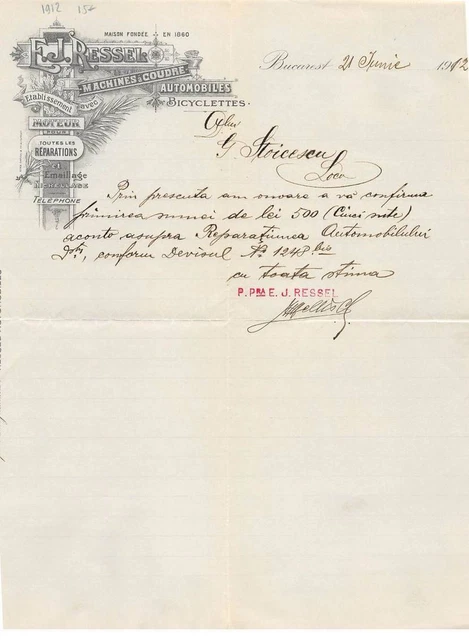 1912 157
MAISON FONDÉE EN 1860
E.J. RESSEL
MACHINES A COUDRE
AUTOMOBILES
BICYCLETTES
Etablissement avec
MOTEUR
POUR
TOUTES LES
RÉPARATIONS
et Emaillage
NICKELAGE
TÉLÉPHONE
Bucarest 21 Iunie 1912
G. Stoicescu
Loco
Prin prezenta am onoare a vă confirma
primirea sumei de lei 500 (Cinci sute)
aconto asupra Reparațiunea Automobilului
Dv., conform Devisul No. 1248 bis
cu toata stima
P. PRA E. J. RESSEL